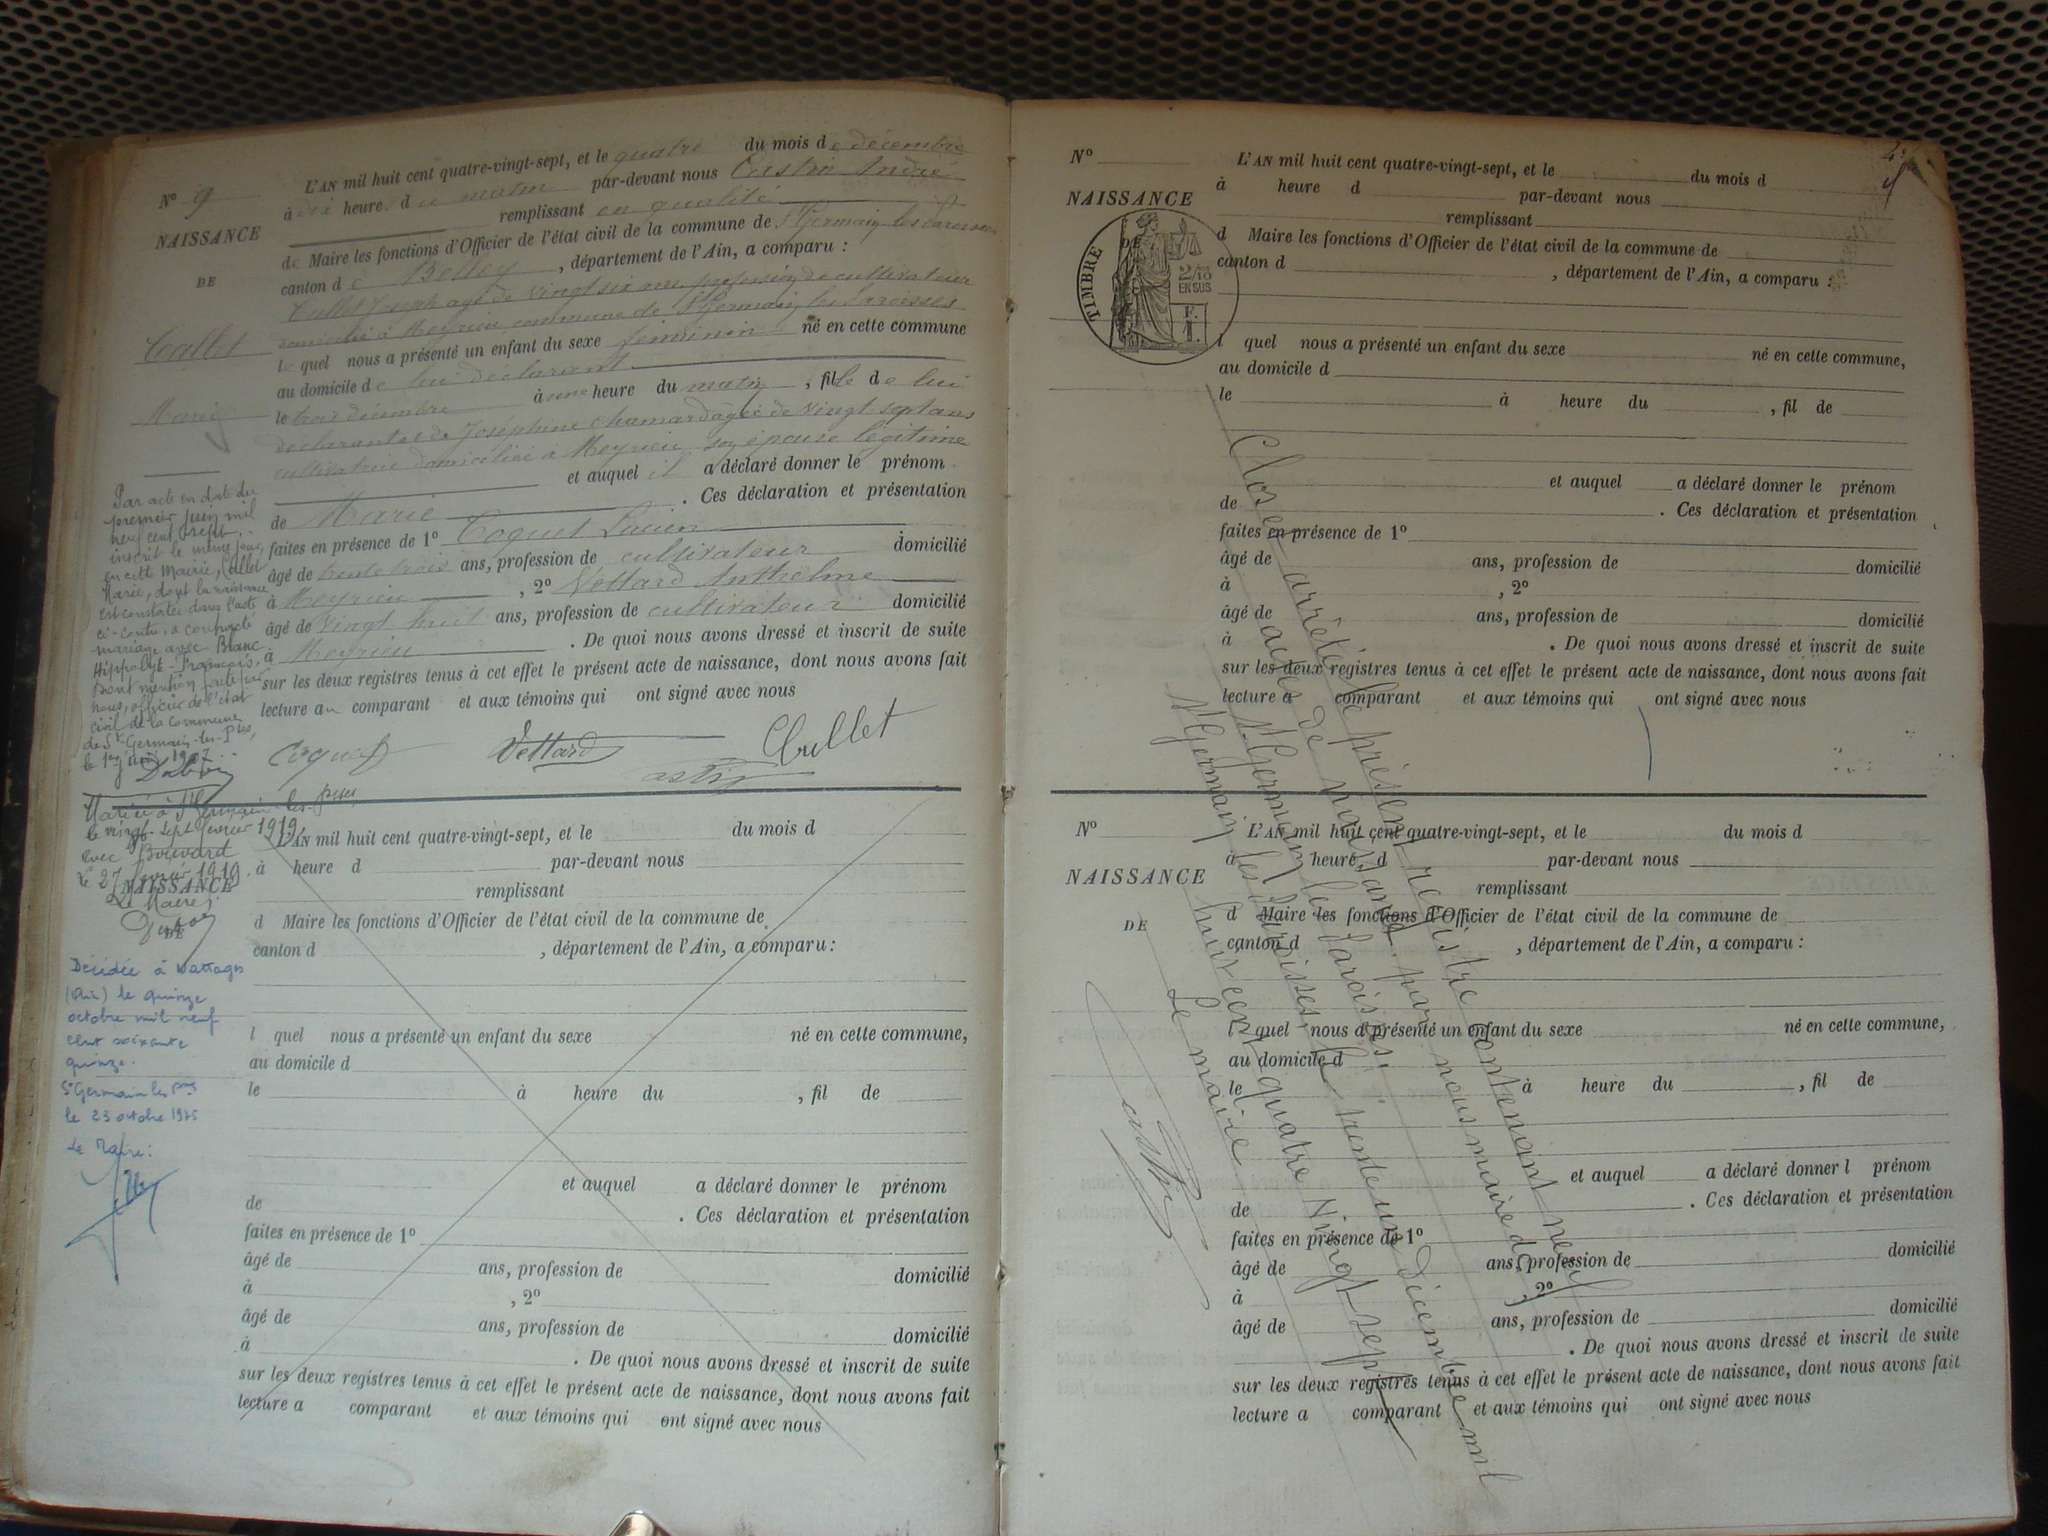 N° 9
NAISSANCE
DE
Callet
Marie
L'AN mil huit cent quatre-vingt-sept, et le quatre du mois de décembre
à dix heure du matin par-devant nous Castin André
remplissant en qualité
de Maire les fonctions d'Officier de l'état civil de la commune de St Germain les Paroisses
canton de Belley, département de l'Ain, a comparu :
Callet Joseph agé de vingt six ans profession de cultivateur
domicilié à Meyrieu commune de St Germain les Paroisses
lequel nous a présenté un enfant du sexe féminin né en cette commune
au domicile de lui déclarant
le trois décembre à une heure du matin, fille de lui
déclarant et de Joséphine Chamard agée de vingt sept ans
cultivatrice domiciliée à Meyrieu son épouse légitime
et auquel il a déclaré donner le prénom
de Marie. Ces déclaration et présentation
faites en présence de 1° Coquet Lucien
âgé de trente trois ans, profession de cultivateur domicilié
à Meyrieu, 2° Vettard Anthelme
âgé de vingt huit ans, profession de cultivateur domicilié
à Meyrieu. De quoi nous avons dressé et inscrit de suite
sur les deux registres tenus à cet effet le présent acte de naissance, dont nous avons fait
lecture au comparant et aux témoins qui ont signé avec nous
Coquet Vettard Callet
Castin
Par acte en date du
premier juin mil
neuf cent sept
inscrit le même jour
en cette Mairie, Callet
Marie, dont la naissance
est constatée dans l'acte
ci-contre, a contracté
mariage avec Blanc
Hippolyte-François,
Dont mention faite par
nous, officier de l'état
civil de la commune
de St-Germain-les-Pses,
le 1er juin 1907
Mariée à St Germain-les-Pses
le vingt-sept février 1919
avec Boievard
le 27 février 1919.
Le Maire,
Décédée à Nattages
(Ain) le quinze
octobre mil neuf
cent soixante
quinze.
St Germain les Pses
le 23 octobre 1975
Le Maire :
NAISSANCE
DE
L'AN mil huit cent quatre-vingt-sept, et le du mois d
à heure d par-devant nous
remplissant
d Maire les fonctions d'Officier de l'état civil de la commune de
canton d , département de l'Ain, a comparu :
l quel nous a présenté un enfant du sexe né en cette commune,
au domicile d
le à heure du , fil de
et auquel a déclaré donner le prénom
de . Ces déclaration et présentation
faites en présence de 1°
âgé de ans, profession de domicilié
à , 2°
âgé de ans, profession de domicilié
à . De quoi nous avons dressé et inscrit de suite
sur les deux registres tenus à cet effet le présent acte de naissance, dont nous avons fait
lecture a comparant et aux témoins qui ont signé avec nous
N°
NAISSANCE
DE
TIMBRE
2/10
EN SUS
L'AN mil huit cent quatre-vingt-sept, et le du mois d
à heure d par-devant nous
remplissant
d Maire les fonctions d'Officier de l'état civil de la commune de
canton d , département de l'Ain, a comparu :
l quel nous a présenté un enfant du sexe né en cette commune,
au domicile d
le à heure du , fil de
et auquel a déclaré donner le prénom
de . Ces déclaration et présentation
faites en présence de 1°
âgé de ans, profession de domicilié
à , 2°
âgé de ans, profession de domicilié
à . De quoi nous avons dressé et inscrit de suite
sur les deux registres tenus à cet effet le présent acte de naissance, dont nous avons fait
lecture a comparant et aux témoins qui ont signé avec nous
N°
NAISSANCE
DE
L'AN mil huit cent quatre-vingt-sept, et le du mois d
à heure d par-devant nous
remplissant
d Maire les fonctions d'Officier de l'état civil de la commune de
canton d , département de l'Ain, a comparu :
l quel nous a présenté un enfant du sexe né en cette commune,
au domicile d
le à heure du , fil de
et auquel a déclaré donner l prénom
de . Ces déclaration et présentation
faites en présence de 1°
âgé de ans, profession de domicilié
à , 2°
âgé de ans, profession de domicilié
. De quoi nous avons dressé et inscrit de suite
sur les deux registres tenus à cet effet le présent acte de naissance, dont nous avons fait
lecture a comparant et aux témoins qui ont signé avec nous
Clos et arrêté le présent registre contenant neuf
actes de naissance par nous maire de
St Germain les Paroisses
St Germain les Paroisses le trente un Décembre mil
huit cent quatre Vingt-sept
Le maire
Castin